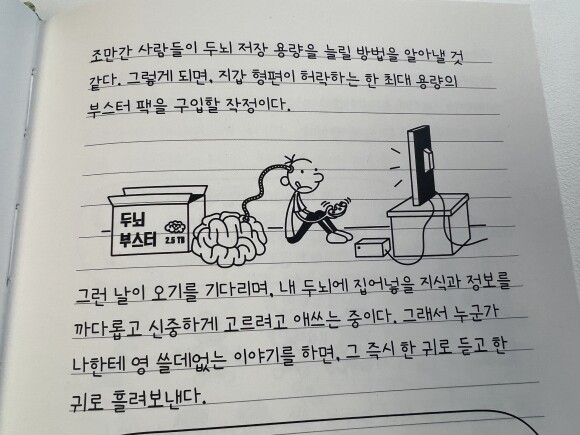 조만간 사람들이 두뇌 저장 용량을 늘릴 방법을 알아낼 것
같다. 그렇게 되면, 지갑 형편이 허락하는 한 최대 용량의
부스터 팩을 구입할 작정이다.
두뇌
부스터 2.5 TB
그런 날이 오기를 기다리며, 내 두뇌에 집어넣을 지식과 정보를
까다롭고 신중하게 고르려고 애쓰는 중이다. 그래서 누군가
나한테 영 쓸데없는 이야기를 하면, 그 즉시 한 귀로 듣고 한
귀로 흘려보낸다.